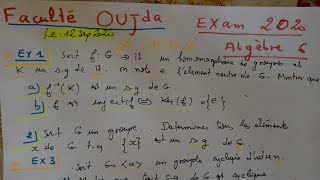 Faculté OUJda
EXam 2020
Le: 12 sep 2020
Algèbre 6
EX 1 Soit f: G → H un homomorphisme de groupes et
K un s.g de H. on note e l'élement neutre de G. Montrer que
a) f⁻¹(K) est un s.g de G.
b) f est injectif ⇔ Ker(f) = {e}
2) Soit G un groupe Determiner tous les éléments
x de G t.q {x} est un s.g de G.
EX 3 Soit G = <a> un groupe cyclique d'ordre n.
que tout s.g de G est cyclique